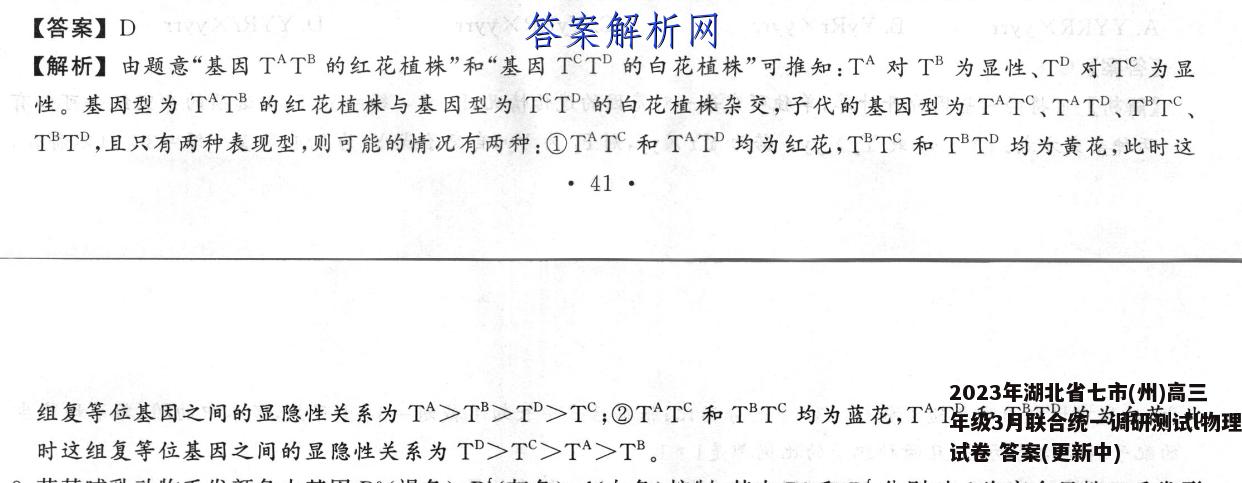 答案解析网
【答案】D
【解析】由题意“基因 TᴬTᴮ 的红花植株”和“基因 TᶜTᴰ 的白花植株”可推知:Tᴬ 对 Tᴮ 为显性、Tᴰ 对 Tᶜ 为显
性。基因型为 TᴬTᴮ 的红花植株与基因型为 TᶜTᴰ 的白花植株杂交,子代的基因型为 TᴬTᶜ、TᴬTᴰ、TᴮTᶜ、
TᴮTᴰ,且只有两种表现型,则可能的情况有两种:①TᴬTᶜ 和 TᴬTᴰ 均为红花,TᴮTᶜ 和 TᴮTᴰ 均为黄花,此时这
· 41 ·
组复等位基因之间的显隐性关系为 Tᴬ>Tᴮ>Tᴰ>Tᶜ;②TᴬTᶜ 和 TᴮTᶜ 均为蓝花,TᴬTᴰ
时这组复等位基因之间的显隐性关系为 Tᴰ>Tᶜ>Tᴬ>Tᴮ。
2023年湖北省七市(州)高三
年级3月联合统一调研测试物理
试卷 答案(更新中)